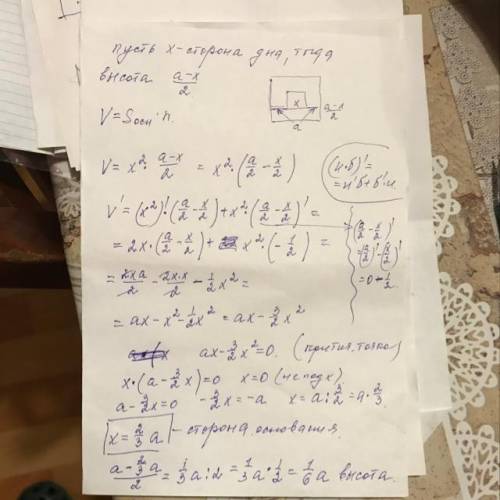 пусть x-сторона дна, тогда
высота (a-x)/2
x
(a-x)/2
a
V = Sосн·h.
V = x²·(a-x)/2 = x²·(a/2 - x/2)
(u·b)' =
= u'b + b'u.
V' = (x²)'·(a/2 - x/2) + x²·(a/2 - x/2)' =
= 2x·(a/2 - x/2) + x²·(-1/2) =
(a/2 - x/2)'
= (a/2)' - (x/2)'
= 0 - 1/2.
= 2xa/2 - 2x·x/2 - 1/2x² =
= ax - x² - 1/2x² = ax - 3/2x²
ax - 3/2x² = 0. (критич. точки)
x·(a - 3/2x) = 0 x = 0 (не подх)
a - 3/2x = 0 -3/2x = -a x = a:3/2 = a·2/3
x = 2/3a - сторона основания.
(a - 2/3a)/2 = 1/3a:2 = 1/3a·1/2 = 1/6a высота.